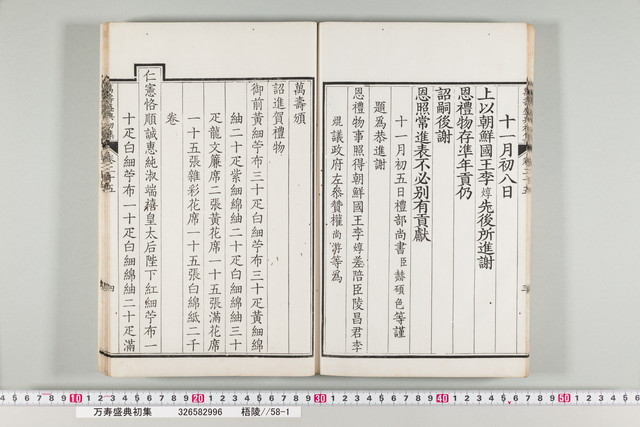 十一月初八日
上以朝鮮國王李焞先後所進謝
恩禮物存準年貢仍
詔嗣後謝
恩照常進表不必别有貢獻
十一月初五日禮部尚書臣赫碩色等謹
題為恭進謝
恩禮物事照得朝鮮國王李焞差陪臣陵昌君李
焜議政府左叅贊權尚游等為
萬壽頒
詔進賀禮物
御前黄細苧布三十疋白細苧布三十疋黄細綿
紬二十疋紫細綿紬二十疋白細綿紬三十
疋龍文簾席二張黄花席一十五張滿花席
一十五張雜彩花席一十五張白綿紙二千
卷
仁憲恪順誠惠純淑端禧皇太后陛下紅細苧布一
十疋白細苧布一十疋白細綿紬二十疋滿
10 20 30 40 50
万寿盛典初集 326582996 梧陵//58-1